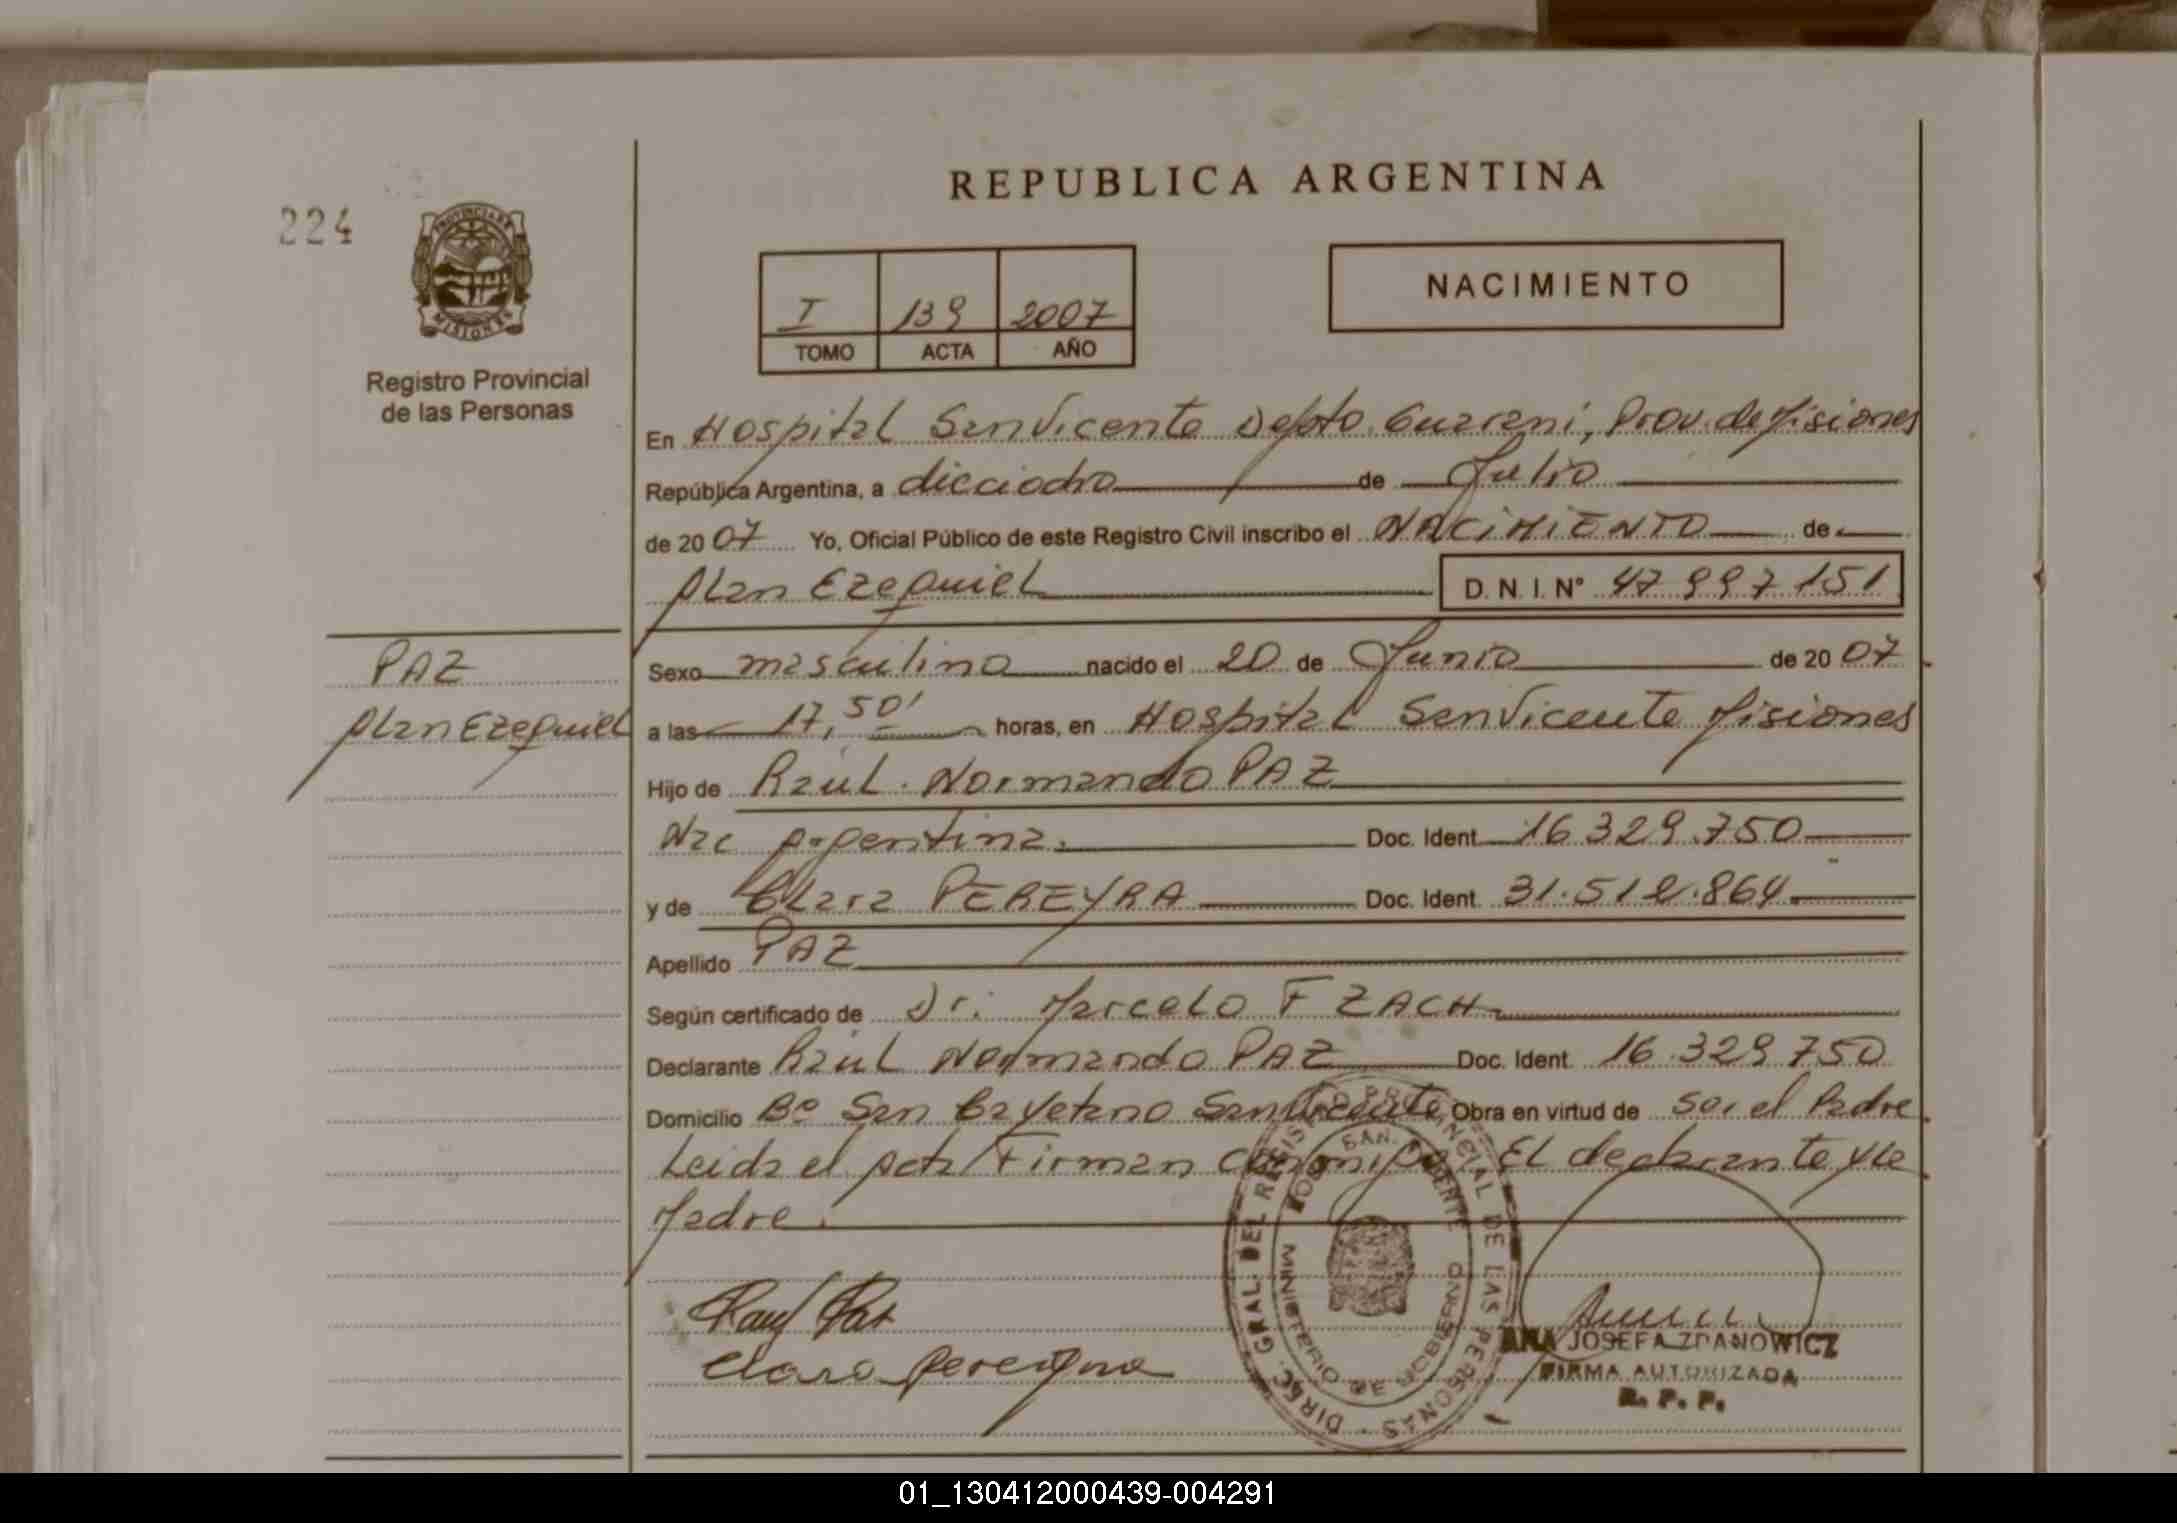 REPUBLICA ARGENTINA
224
PROVINCIA DE
MISIONES
Registro Provincial
de las Personas
I 139 2007
TOMO ACTA AÑO
NACIMIENTO
En Hospital San Vicente Depto. Guarani, Prov. de Misiones
República Argentina, a dieciocho de Julio
de 2007 Yo, Oficial Público de este Registro Civil inscribo el NACIMIENTO de
Alan Ezequiel D. N. I. N° 47 997 151
PAZ
Alan Ezequiel
Sexo masculino nacido el 20 de Junio de 2007
a las 17,50' horas, en Hospital San Vicente Misiones
Hijo de Raúl Normando PAZ
Nac Argentina. Doc. Ident. 16.329.750
y de Clara PEREYRA Doc. Ident. 31.512.864.
Apellido PAZ
Según certificado de Dr. Marcelo F ZACH
Declarante Raúl Normando PAZ Doc. Ident. 16.329 750
Domicilio Bº San Cayetano San Vicente Obra en virtud de ser el Padre
Leida el Acta Firman conmigo. El declarante y la
Madre.
Raul Paz
Clara
DIREC. GRAL. DEL REGISTRO PROVINCIAL DE LAS PERSONAS
SAN VICENTE
MINISTERIO DE GOBIERNO
ANA JOSEFA ZDANOWICZ
FIRMA AUTORIZADA
R. P. P.
01_130412000439-004291